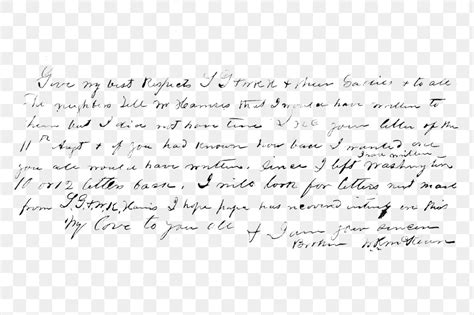 Give my best Respects S. G. & W. R. H. & their Ladies & to all
The neighbors Tell Mr that I would have written to
them but I did not have time I rec your letter of the
11th & if you had known how bad I wanted one
you all would have written. Since I left Washington
I have written
10 or 12 letters back. I will look for letters next mail
from S. G. & W. R. I hope papa has recovered by this
My Love to you all & I am your sincere
Brother